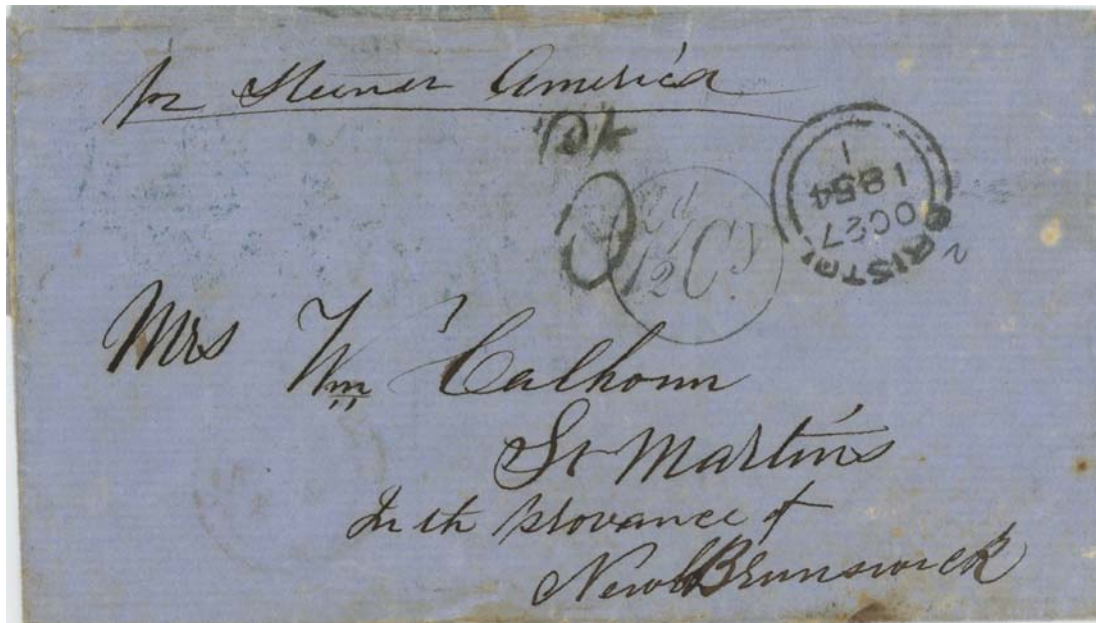 per Steamer America
BRISTOL
OC 27
1854
1
7½d Cy
Mrs Wm Calhoun
St Martins
In th provance of
New Brunswick